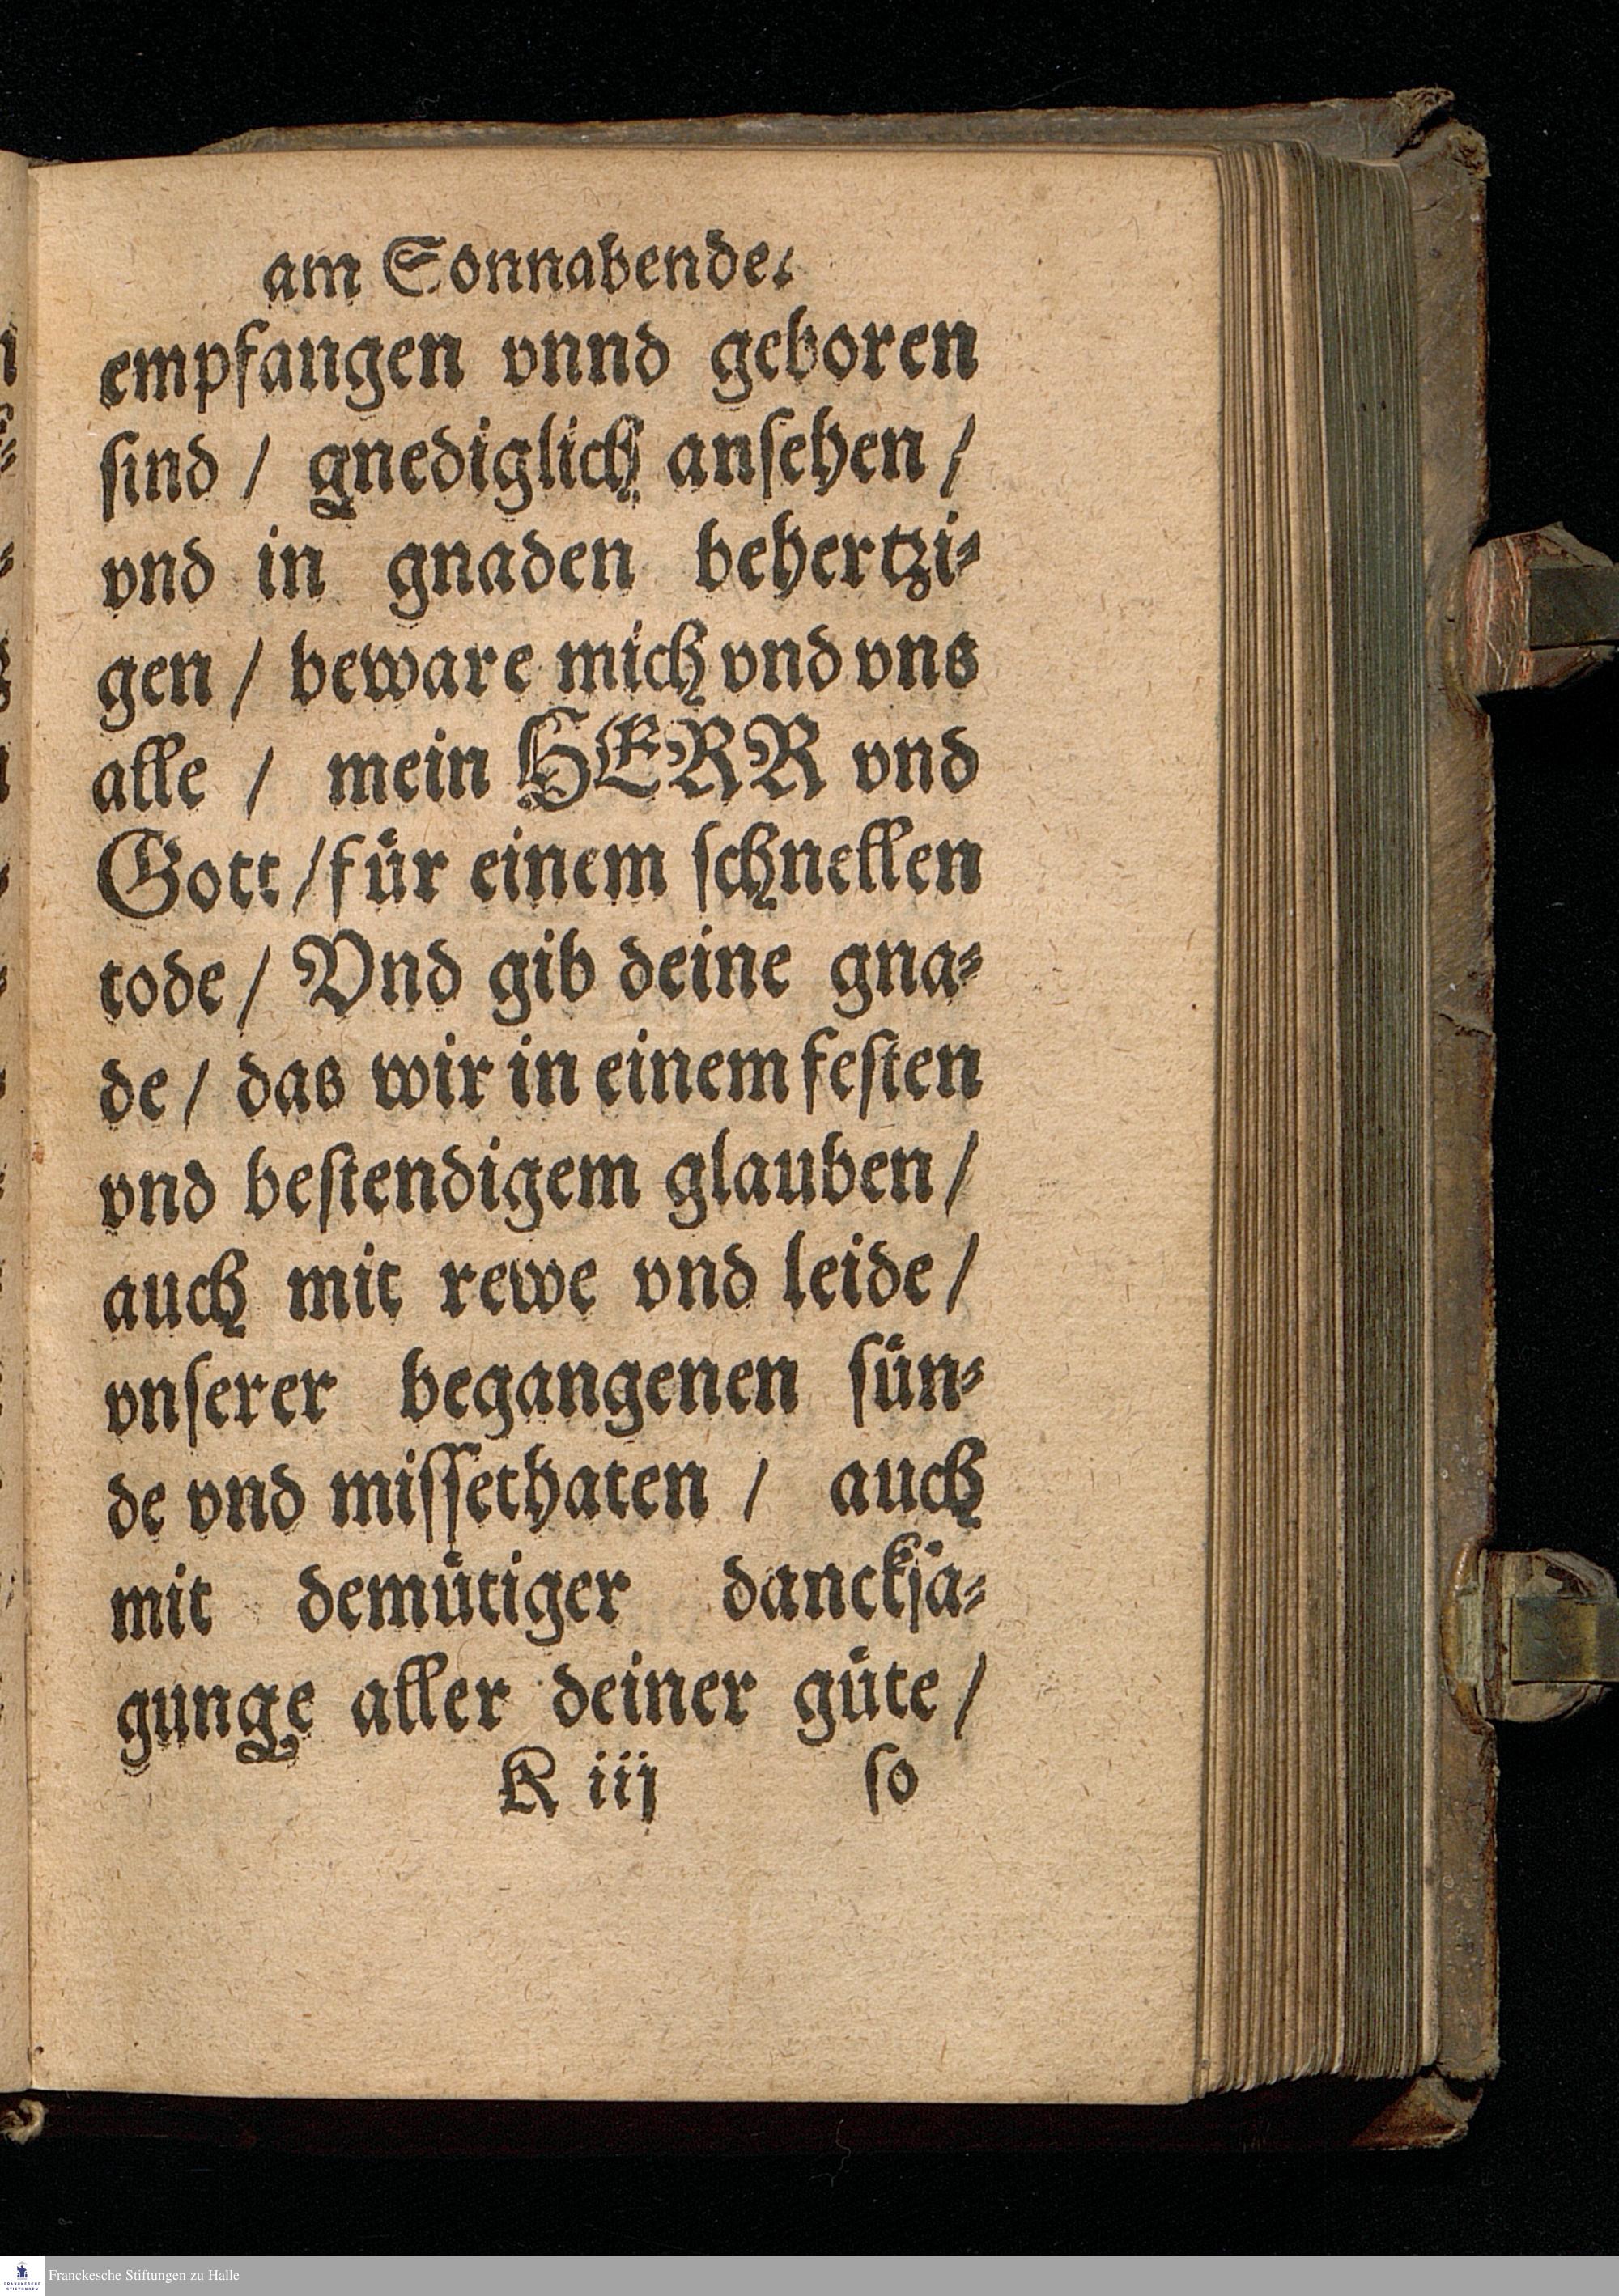 am Sonnabende.
empfangen vnnd geboren
sind / gnediglich ansehen /
vnd in gnaden behertzi-
gen / beware mich vnd vns
alle / mein HERR vnd
Gott / für einem schnellen
tode / Vnd gib deine gna-
de / das wir in einem festen
vnd bestendigem glauben /
auch mit rewe vnd leide /
vnserer begangenen sün-
de vnd missethaten / auch
mit demütiger dancksa-
gunge aller deiner güte /
K iij so
FRANCKESCHE STIFTUNGEN
Franckesche Stiftungen zu Halle